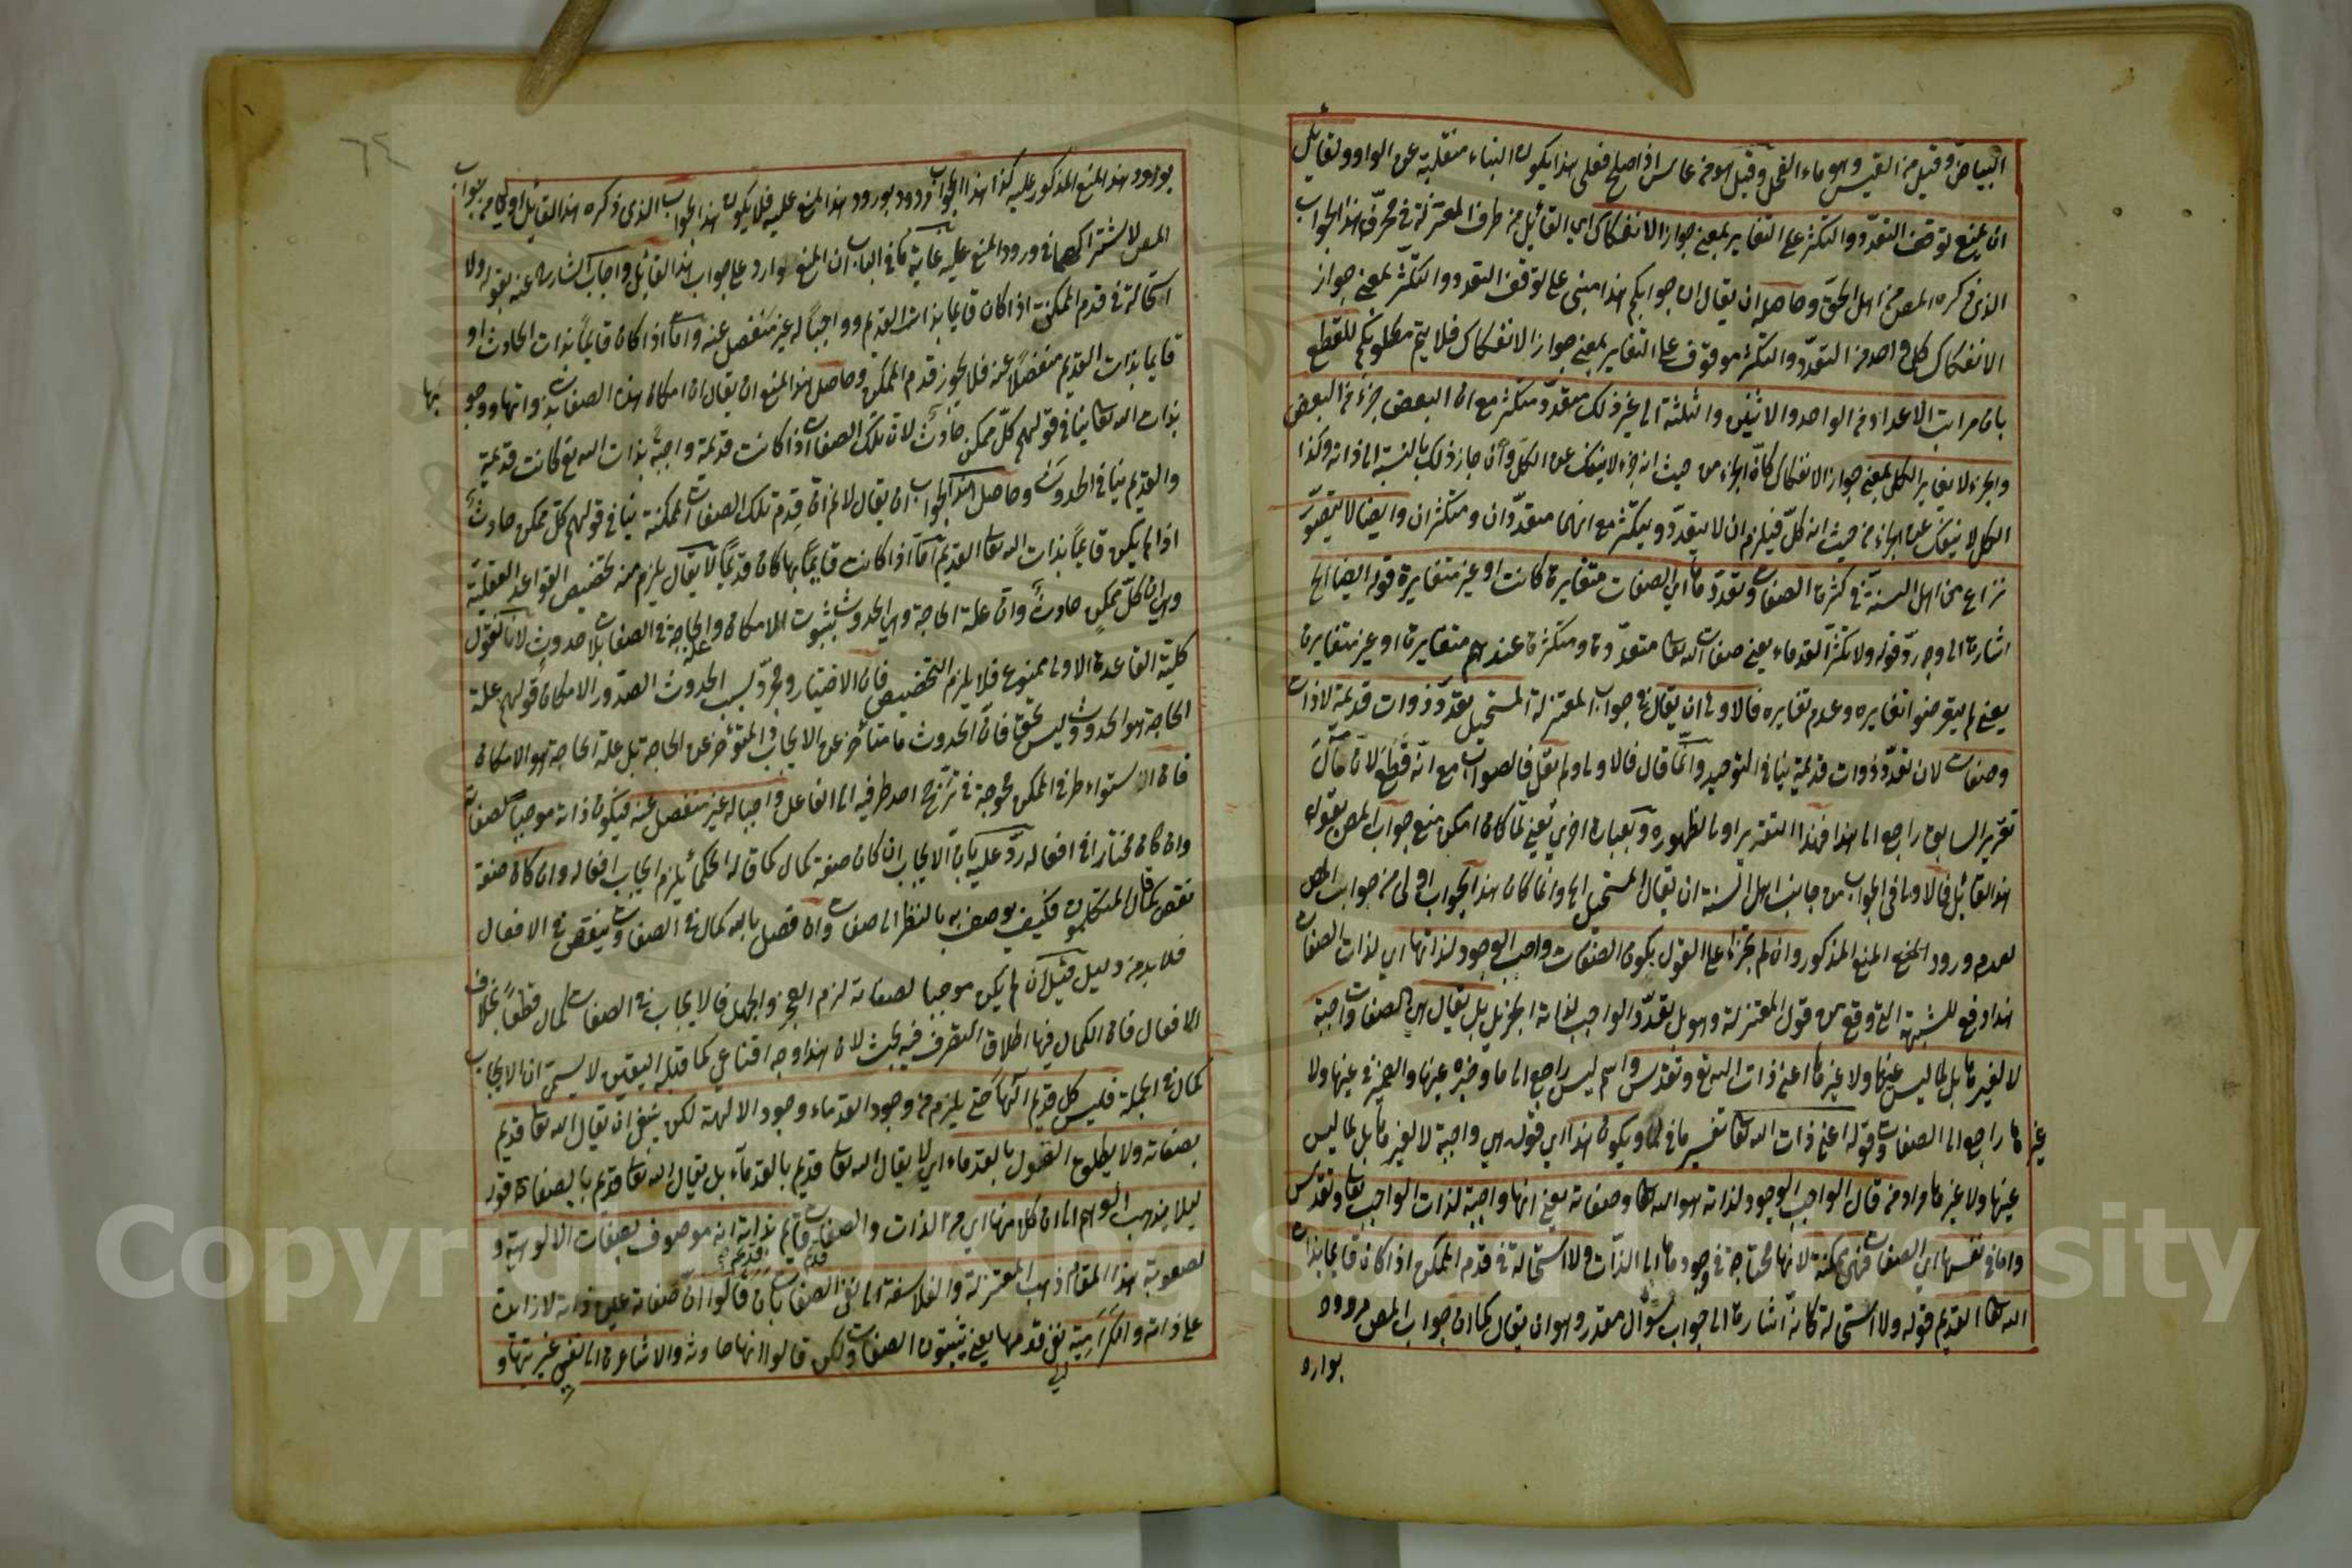 البياض وقيل من القيس وهو ماء الفحل وقيل هو من عاس اذا صلح فعلى هذا يكون الياء منقلبة عن الواو ولقائل
ان يمنع توقف التعدد والتكثر على التغاير بمعنى جواز الانفكاك اى القائل من طرف المعتزلة في هذا الجواب
الذى ذكره المص من اهل الحق وحاصله ان يقال ان جوابكم هذا مبنى على توقف التعدد والتكثر بمعنى جواز
الانفكاك كل واحد من التعدد والتكثر موقوف على التغاير بمعنى جواز الانفكاك فلا يتم مطلوبكم للقطع
بان مراتب الاعداد من الواحد والاثنين والثلثة الى غير ذلك متعدد متكثر مع ان البعض جزء من البعض
والجزء لا يغاير الكل بمعنى جواز الانفكاك كانّ الجزء من حيث انه جزء لا ينفك عن الكل وان جاز ذلك بالنسبة الى ذاته وكذا
الكل لا ينفك عن الجزء من حيث انه كل فيلزم ان لا يتعدد ويتكثر مع انهما متعددان ومتكثران وايضا لا يتصور
نزاع من اهل السنة في كثرة الصفات وتعددها اى الصفات متغايرة كانت او غير متغايرة قوله ايضا الخ
اشارة الى وجه ردّ قوله ولا تكثر القدماء يعنى صفات الله تعا متعددة ومتكثرة عندهم متغايرة او غير متغايرة
يعنى لم يتعرضوا تغايره وعدم تغايره فالاولى ان يقال في جواب المعتزلة المستحيل تعدد ذوات قديمة لا ذات
وصفات لان تعدد ذوات قديمة ينافى التوحيد وانما قال فالاولى ولم يقل فالصواب مع انه قطع لان مآل
تقرير السابق راجع الى هذا فهذا التقرير اولى لظهوره وبعبارة اخرى يعنى لما كان امكن منع جواب المص بقوله
هذا القائل فالاولى في الجواب من جانب اهل السنة ان يقال المستحيل الخ وانما كان هذا الجواب اولى من جواب المص
لعدم ورود المنع المذكور وان لم يجترأ على القول بكون الصفات واجب الوجود لذاتها اى لذات الصفات
هذا دفع للشبهة التى وقع من قول المعتزلة وهو بل تعدد الواجب لذاته الخ بل يقال هى الصفات واجبة
لا لغيرها بل لما ليس عينها ولا غيرها اعنى ذات الله تع وتقدس واسم ليس راجع الى ما وخبره عينها والضمير في عينها ولا
غيرها راجع الى الصفات وقوله اعنى ذات الله تعا تفسير ما في لما ويكون هذا اى قوله هى واجبة لا لغيرها بل لما ليس
عينها ولا غيرها مراد من قال الواجب الوجود لذاته هو الله تعا وصفاته يعنى انها واجبة لذات الواجب تعا وتقدس
واما في نفسها اى الصفات فهى ممكنة لانها محتاجة في وجودها الى الذات ولا استحالة في قدم الممكن اذا كان قائما بذات
الله تعا القديم قوله ولا استحالة كانه اشارة الى جواب سؤال مقدر وهو ان يقال كما ان جواب المص مردود
بوارد
بورود هذا المنع المذكور عليه كذا هذا الجواب مردود بورود هذا المنع عليه فلا يكون هذا الجواب الذى ذكره هذا القائل اولى من جواب
المص لاشتراكهما في ورود المنع عليه غاية ما في الباب ان المنع وارد على جواب هذا القائل واجاب الشارح عنه بقوله ولا
استحالة في قدم الممكن اذا كان قائما بذات القديم وواجبا له غير منفصل عنه واما اذا كان قائما بذات الحادث او
قائما بذات القديم منفصلا عنه فلا يجوز قدم الممكن وحاصل هذا المنع ان يقال ان امكان هذه الصفات بذواتها ووجوبها
بذات الله تعا ينافى قولهم كل ممكن حادث لان تلك الصفات اذا كانت قديمة واجبة بذات الله تع كانت قديمة
والقديم ينافى الحدوث وحاصل هذا الجواب ان يقال لا نم ان قدم تلك الصفات الممكنة ينافى قولهم كل ممكن حادث
اذا لم يكن قائما بذات الله تعا القديم اما اذا كانت قائما بها كان قديما لا يقال يلزم منه تخصيص القواعد العقلية
وهى ان كل ممكن حادث وان علة الحاجة وهى الحدوث بثبوت الامكان والحاجة في الصفات بلا حدوث لانا نقول
كلية القاعدة الاولى ممنوع فلا يلزم التخصيص فان الاختيار ومجرد بسبب الحدوث الصدور الامكان قولهم علة
الحاجة هو الحدوث وليس بحق فان الحدوث ما متأخر عن الايجاب المتؤخر عن الحاجة بل علة الحاجة هو الامكان
فان استواء طرفى الممكن محوجة في ترجح احد طرفيه الى الفاعل واجبا له غير منفصل عنه فيكون ذاته موجبا لصفاته
وان كان مختارا في افعاله ردّ عليه بان الايجاب ان كان صفة كمال كما قاله الحكماء يلزم ايجاب افعاله وان كان صفة
نقص كما قال المتكلمون فكيف يوصف به بالنظر الى صفات وان فصل بانه كمال في الصفات ونقص في الافعال
فلا بد من دليل قيل ان لم يكن موجبا لصفاته لزم العجز والجهل فالايجاب في الصفات كمال قطعا بخلاف
الافعال فان الكمال فيها اطلاق التصرف فيه بحث لان هذا وجه اقناعى كما قبله اليقين لا يسمى ان الايجاب
كمال في الجملة فليس كل قديم الها حتى يلزم من وجود القدماء وجود الالهة لكن ينبغى ان يقال الله تعا قديم
بصفاته ولا يطلق القول بالقدماء اى لا يقال الله تعا قديم بالقدماء بل يقال الله تعا قديم بالصفات قوله
ليلا يذهب الوهم الى ان كلا منها اى من الذات والصفات قائم بذاته انه موصوف بصفات الالوهية و
لصعوبة هذا المقام ذهب المعتزلة والفلاسفة الى نفى الصفات بان قالوا ان صفاته عين ذاته لا زائدة
على ذاته والكرامية نفى قدمها يعنى يثبتون الصفات ولكن قالوا انها حادثة والاشاعرة الى نفى غيريتها و